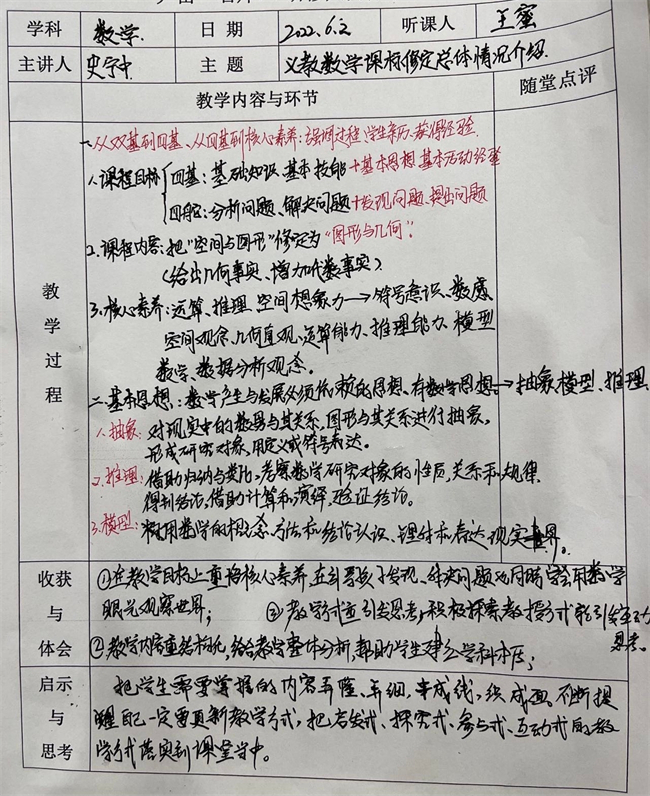 学科 数学 日期 2022.6.2 听课人 王蜜
主讲人 史宁中 主题 义教数学课标修定总体情况介绍
教学内容与环节 随堂点评
教学过程
一.从双基到四基、从四基到核心素养:强调过程,学生亲历、获得经验.
1.课程目标 四基:基础知识、基本技能+基本思想、基本活动经验
四能:分析问题、解决问题+发现问题、提出问题
2.课程内容:把"空间与图形"修定为"图形与几何".
(给出几何事实、增加代数事实)
3.核心素养:运算、推理、空间想象力→符号意识、数感
空间观念、几何直观、运算能力、推理能力、模型
数学、数据分析观念。
二.基本思想:数学产生与发展必须依赖的思想、有数学思想→抽象、模型、推理
1.抽象:对现实中的数量与其关系,图形与其关系进行抽象,
形成研究对象,用定义或符号表达。
2.推理:借助归纳与类比,考察数学研究对象的性质,关系和规律
得到结论,借助计算和演绎,验证结论。
3.模型:利用数学的概念、方法和结论认识、理解和表达现实世界。
收获与体会
①在教学目标上重指核心素养,在引导孩子发现、解决问题的同时学会用数学
眼光观察世界; ③教学方式重引发思考,积极探索教授方式
思考。
②教学内容重结构化,给给教学整体分析,帮助学生建立学科本质;
启示与思考
把学生需要掌握的内容弄懂、弄细,串成线,织成画,不断提
醒自己一定要更新教学方式,把启发式、探究式、参与式、互动式的教
学方式落实到课堂当中。